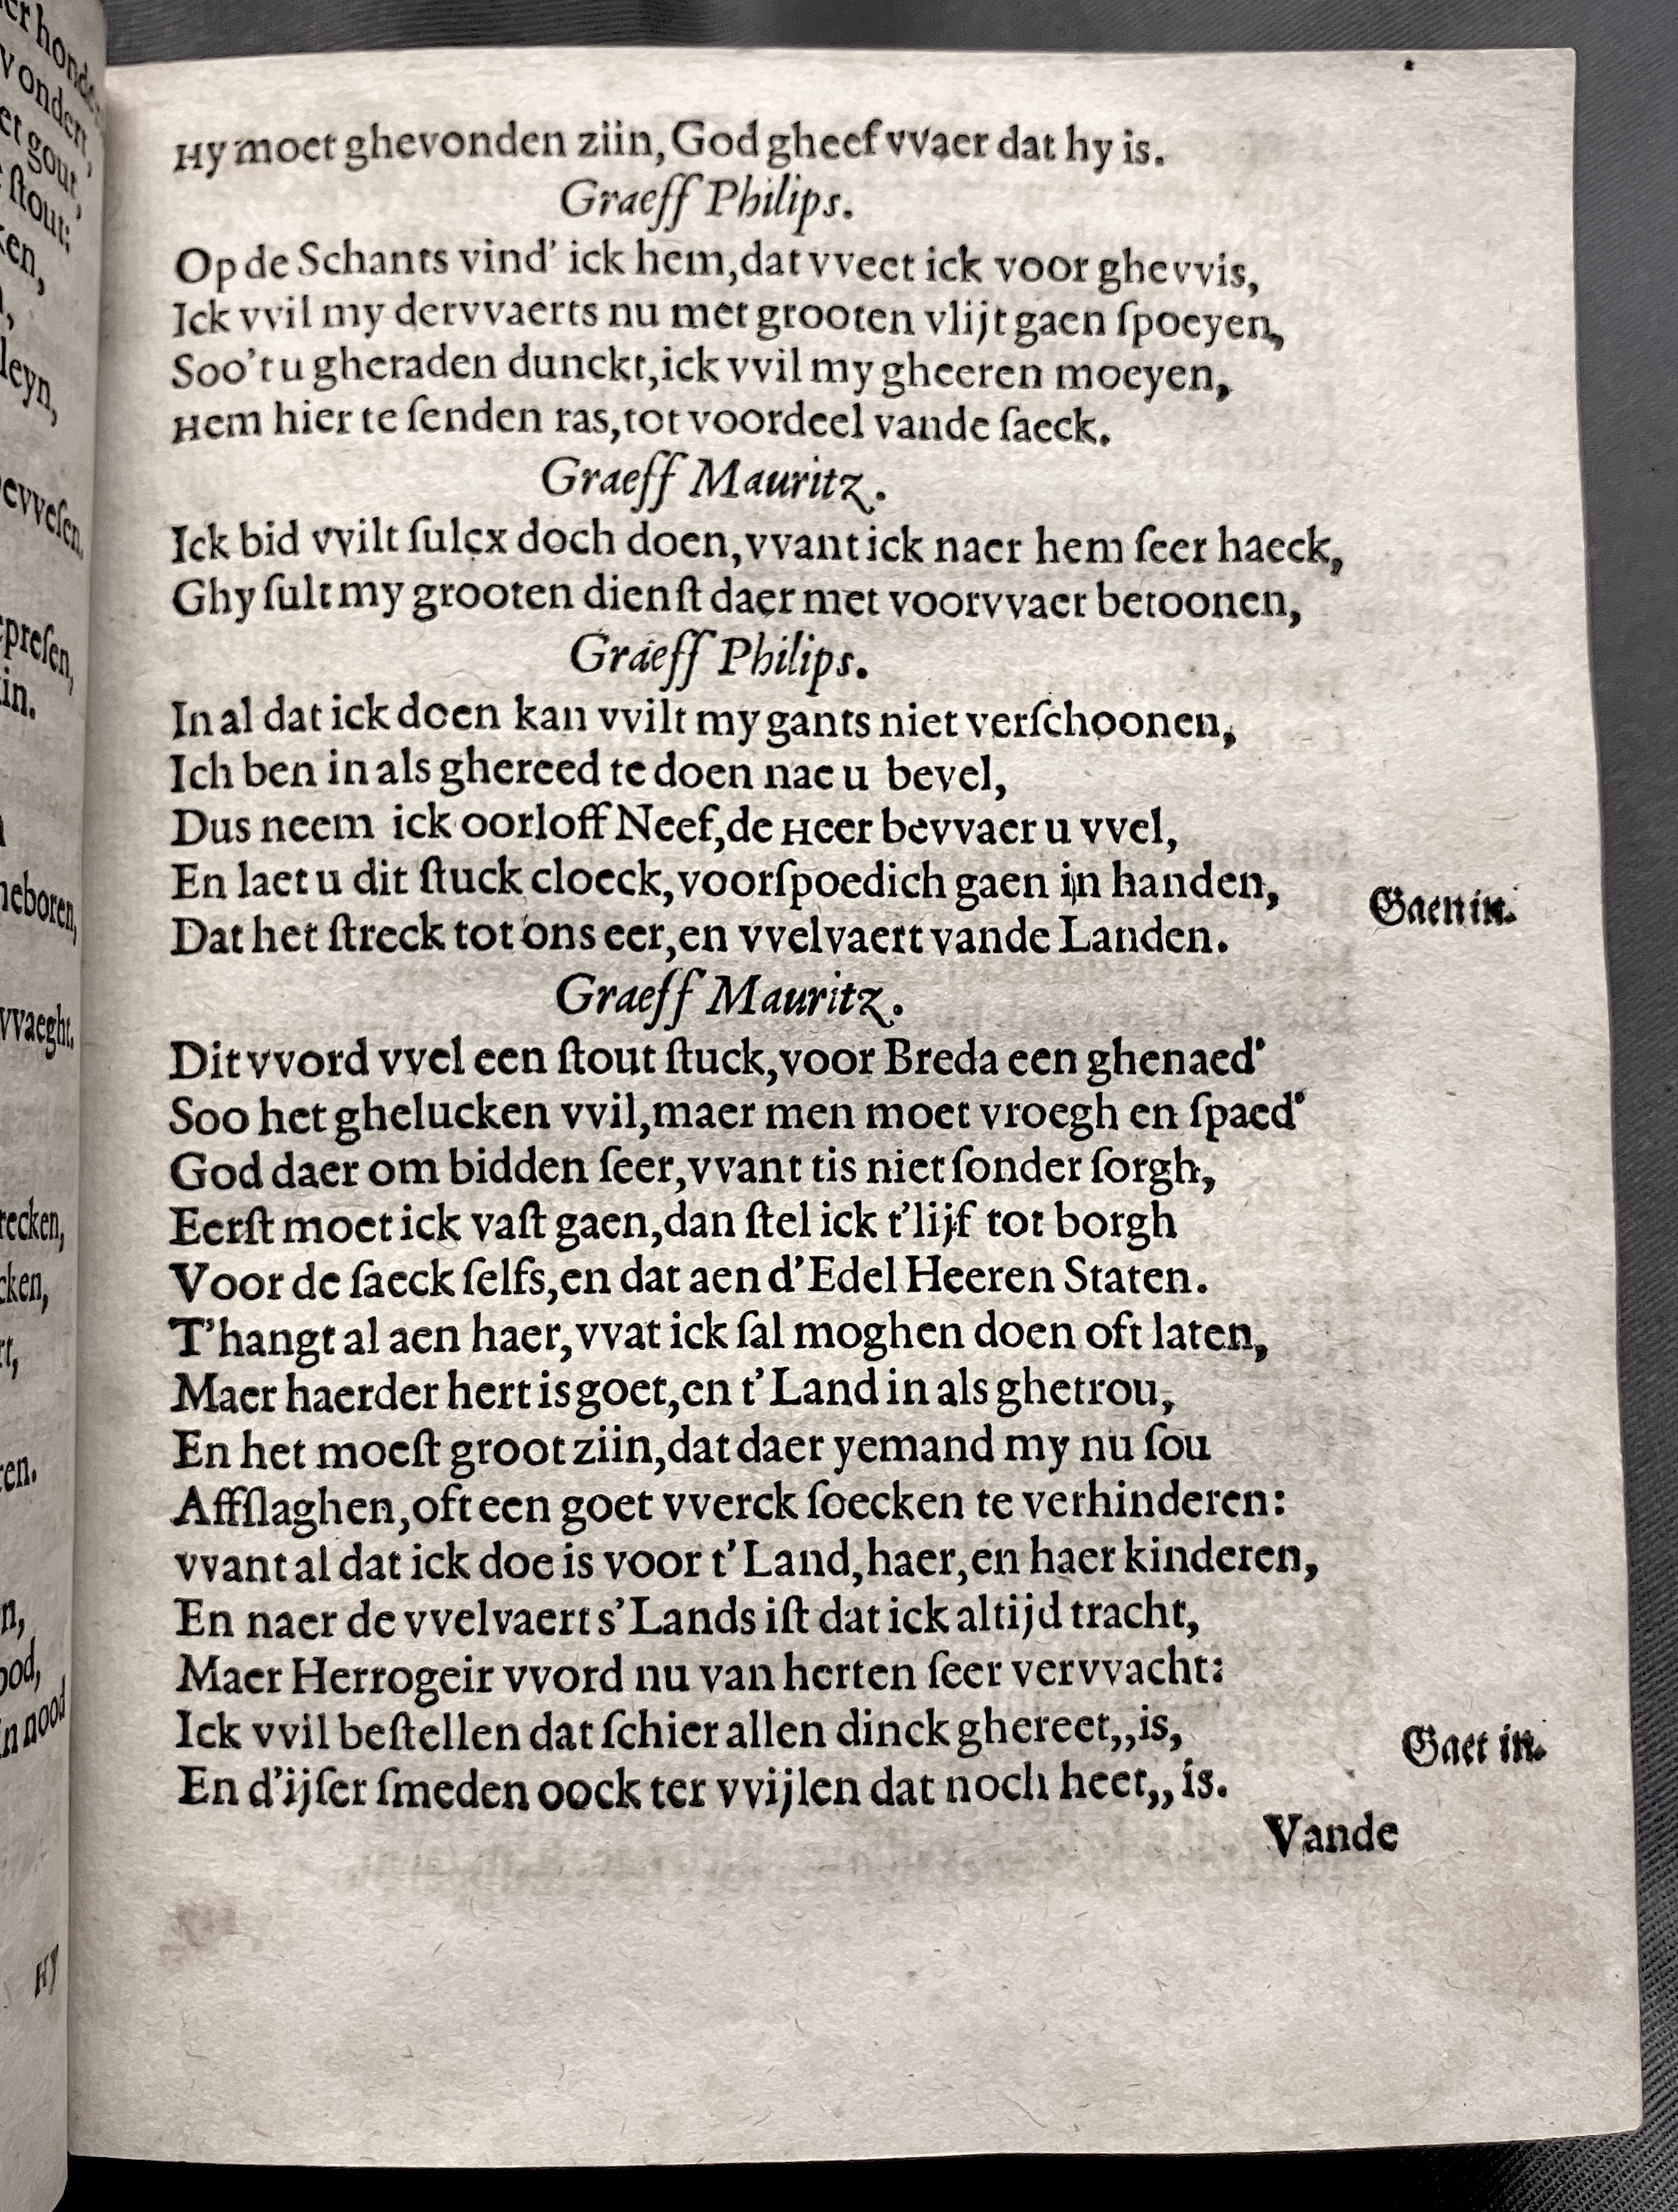 Hy moet ghevonden ziin, God gheef vvaer dat hy is.
Graeff Philips.
Op de Schants vind' ick hem, dat vveet ick voor ghevvis,
Ick vvil my dervvaerts nu met grooten vlijt gaen ſpoeyen,
Soo't u gheraden dunckt, ick vvil my gheeren moeyen,
Hem hier te ſenden ras, tot voordeel vande ſaeck.
Graeff Mauritz.
Ick bid vvilt ſulcx doch doen, vvant ick naer hem ſeer haeck,
Ghy ſult my grooten dienſt daer met voorvvaer betoonen,
Graeff Philips.
In al dat ick doen kan vvilt my gants niet verſchoonen,
Ich ben in als ghereed te doen nae u bevel,
Dus neem ick oorloff Neef, de Heer bevvaer u vvel,
En laet u dit ſtuck cloeck, voorſpoedich gaen in handen,
Gaen in.
Dat het ſtreck tot ons eer, en vvelvaert vande Landen.
Graeff Mauritz.
Dit vvord vvel een ſtout ſtuck, voor Breda een ghenaed'
Soo het ghelucken vvil, maer men moet vroegh en ſpaed'
God daer om bidden ſeer, vvant tis niet ſonder ſorgh,
Eerſt moet ick vaſt gaen, dan ſtel ick t'lijf tot borgh
Voor de ſaeck ſelfs, en dat aen d'Edel Heeren Staten.
T'hangt al aen haer, vvat ick ſal moghen doen oft laten,
Maer haerder hert is goet, en t'Land in als ghetrou,
En het moeſt groot ziin, dat daer yemand my nu ſou
Affſlaghen, oft een goet vverck ſoecken te verhinderen:
vvant al dat ick doe is voor t'Land, haer, en haer kinderen,
En naer de vvelvaert s'Lands iſt dat ick altijd tracht,
Maer Herrogeir vvord nu van herten ſeer vervvacht:
Ick vvil beſtellen dat ſchier allen dinck ghereet,, is,
Gaet in.
En d'ijſer ſmeden oock ter vvijlen dat noch heet,, is.
Vande